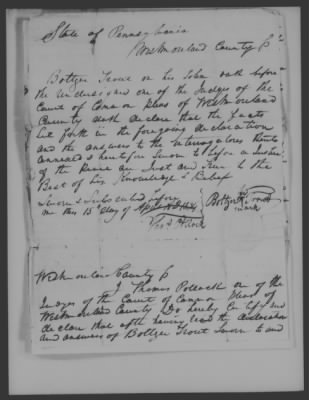 State of Pennsylvania
Westmoreland County
Boltzer Trout on his Solem oath before
the undersigned one of the Judges of the
Court of Common pleas of Westmoreland
County doth declare that the facts
Set forth in the foregoing declaration
and the answers to the interrogatories thereto
annexed & heretofore Sworn to before a Justice
of the Peace are Just and True to the
Best of his Knowledge & Belief
Sworn & Subscribed before
me this 15th day of
Boltzer Trout
mark
Thos Pollock
Westmoreland County
I Thomas Pollock on of the
Judges of the Court of Common pleas of
Westmoreland County Do hereby Certify and
declare that after having read the declaration
and answers of Boltzer Trout Sworn to and